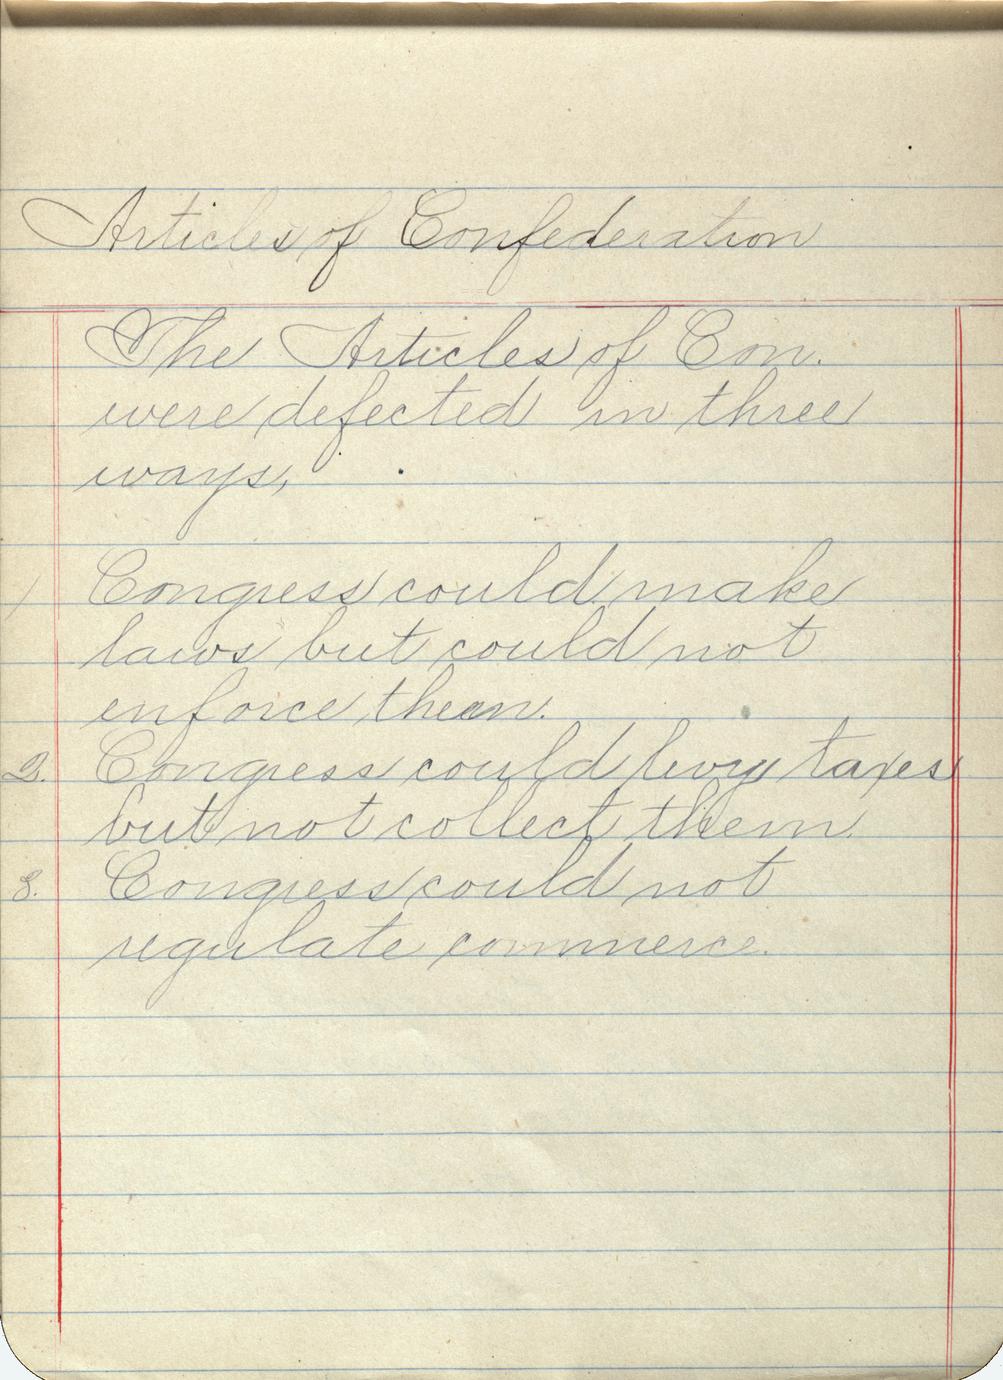 Articles of Confederation
The Articles of Con.
were defected in three
ways,
1 Congress could make
laws but could not
enforce them.
2. Congress could levy taxes
but not collect them.
3. Congress could not
regulate commerce.